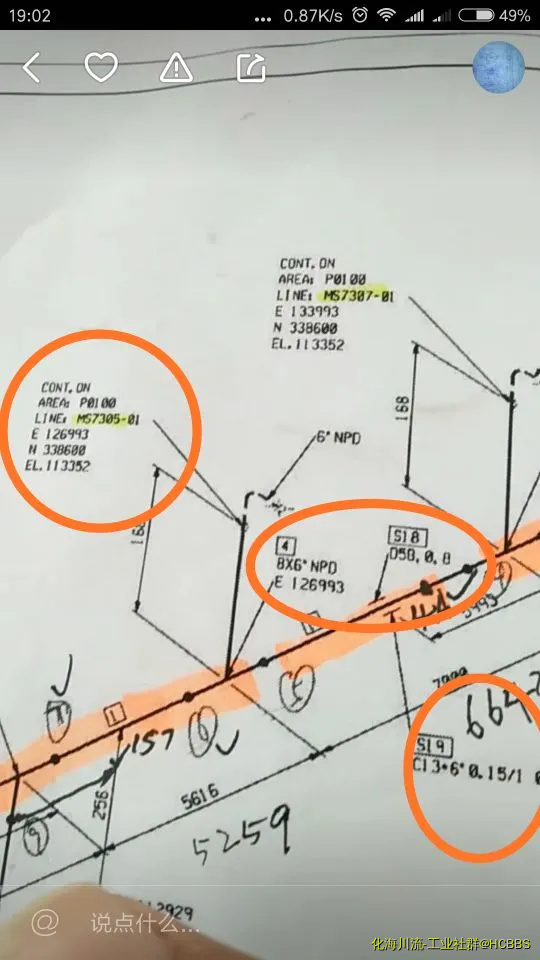 19:02
0.87K/s
49%
CONT. ON
AREA: P0100
LINE: MS7307-01
E 133993
N 338600
EL.113352
CONT. ON
AREA: P0100
LINE: MS7305-01
E 126993
N 338600
EL.113352
168
6" NPD
4
8X6" NPD
E 126993
S18
D58, 0, 8
1
157
256
5616
5259
S19
@
说点什么...
化海川流-工业社群@HCBBS